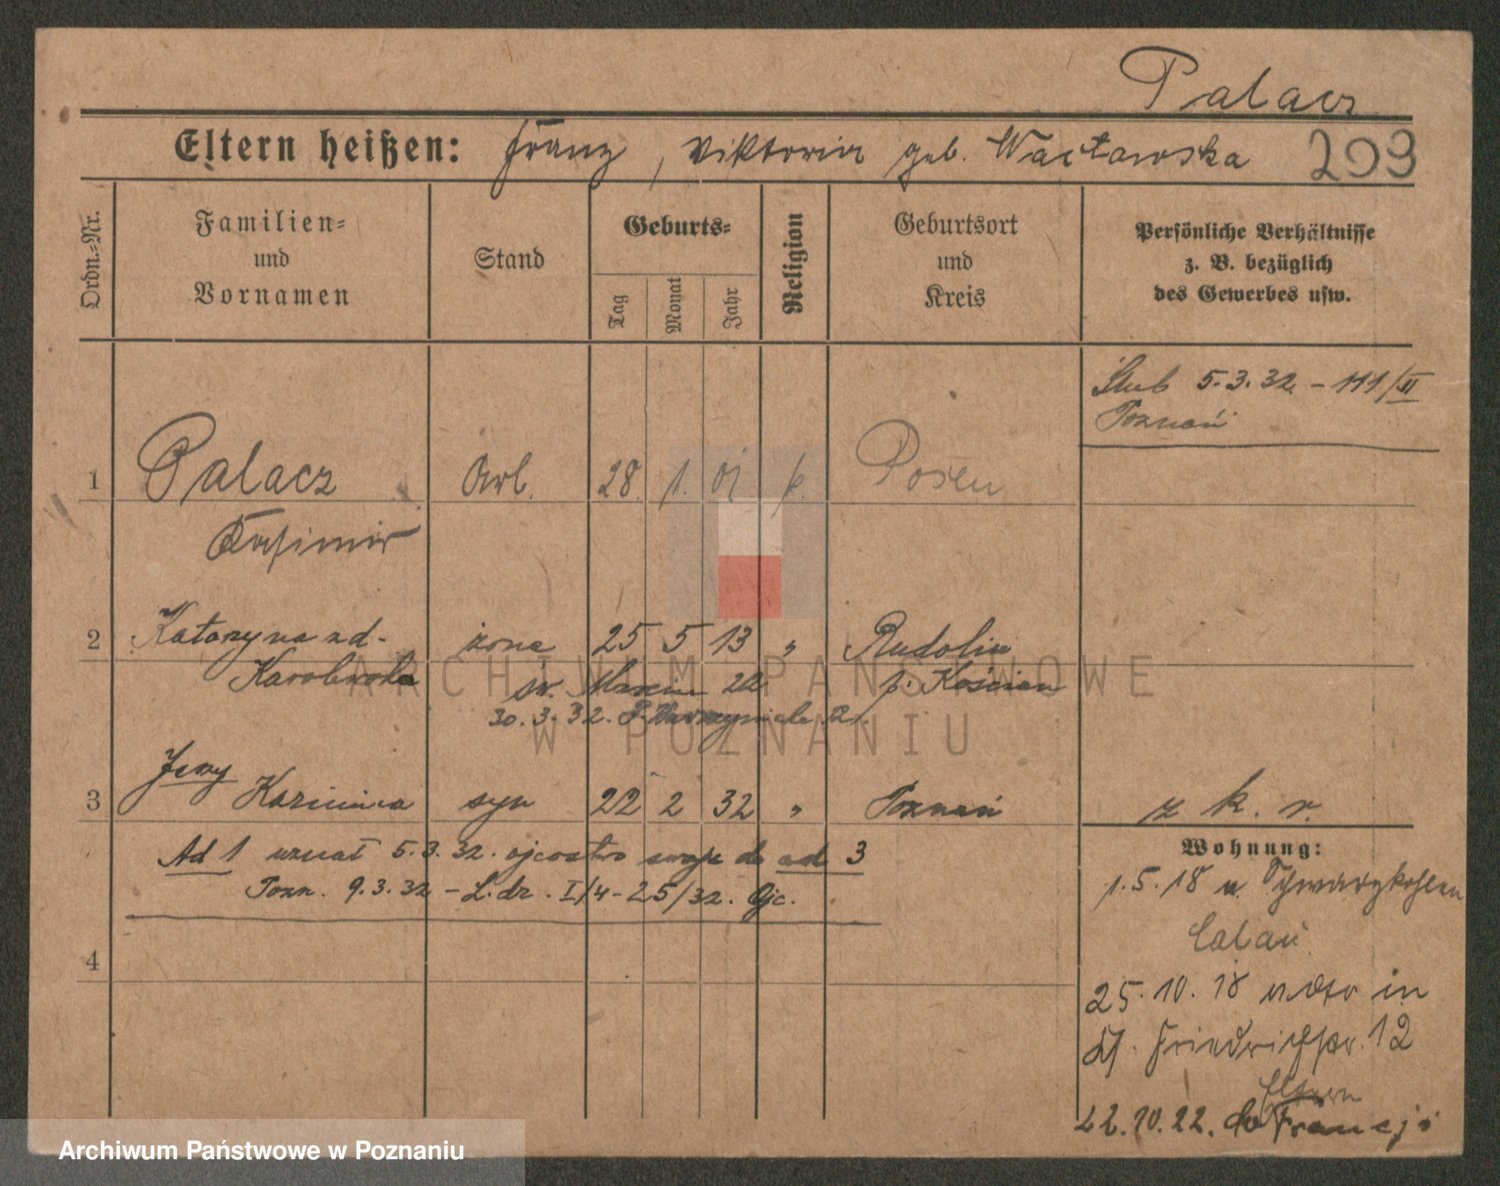 Palacz
Eltern heißen: Franz, Viktoria geb. Wacławska 209
Ordn.=Nr.
Familien=
und
Vornamen
Stand
Geburts=
Tag
Monat
Jahr
Religion
Geburtsort
und
Kreis
Persönliche Verhältnisse
z. B. bezüglich
des Gewerbes usw.
Ślub 5.3.32 - 111/II
Poznań
1 Palacz Arb. 28 1. 01 k. Posen
Kasimir
2 Katarzyna zd- żona 25 5 13 " Rudolin
sw. Marcin 22 p. Kościan
30.3.32.
Jerzy
3 Kazimierz syn 22 2 32 " Poznań z k. r.
Ad 1 uznał 5.3.32. ojcostwo swoje do ad 3
Pozn. 9.3.32 - L. dz. I/4-25/32. Ojc.
4
Wohnung:
1.5.18 n. Schwarzkohlen
Calau
25.10.18 in
Friedrichstr. 12
Eltern
22.10.22. do Francji
ARCHIWUM PAŃSTWOWE
W POZNANIU
Archiwum Państwowe w Poznaniu